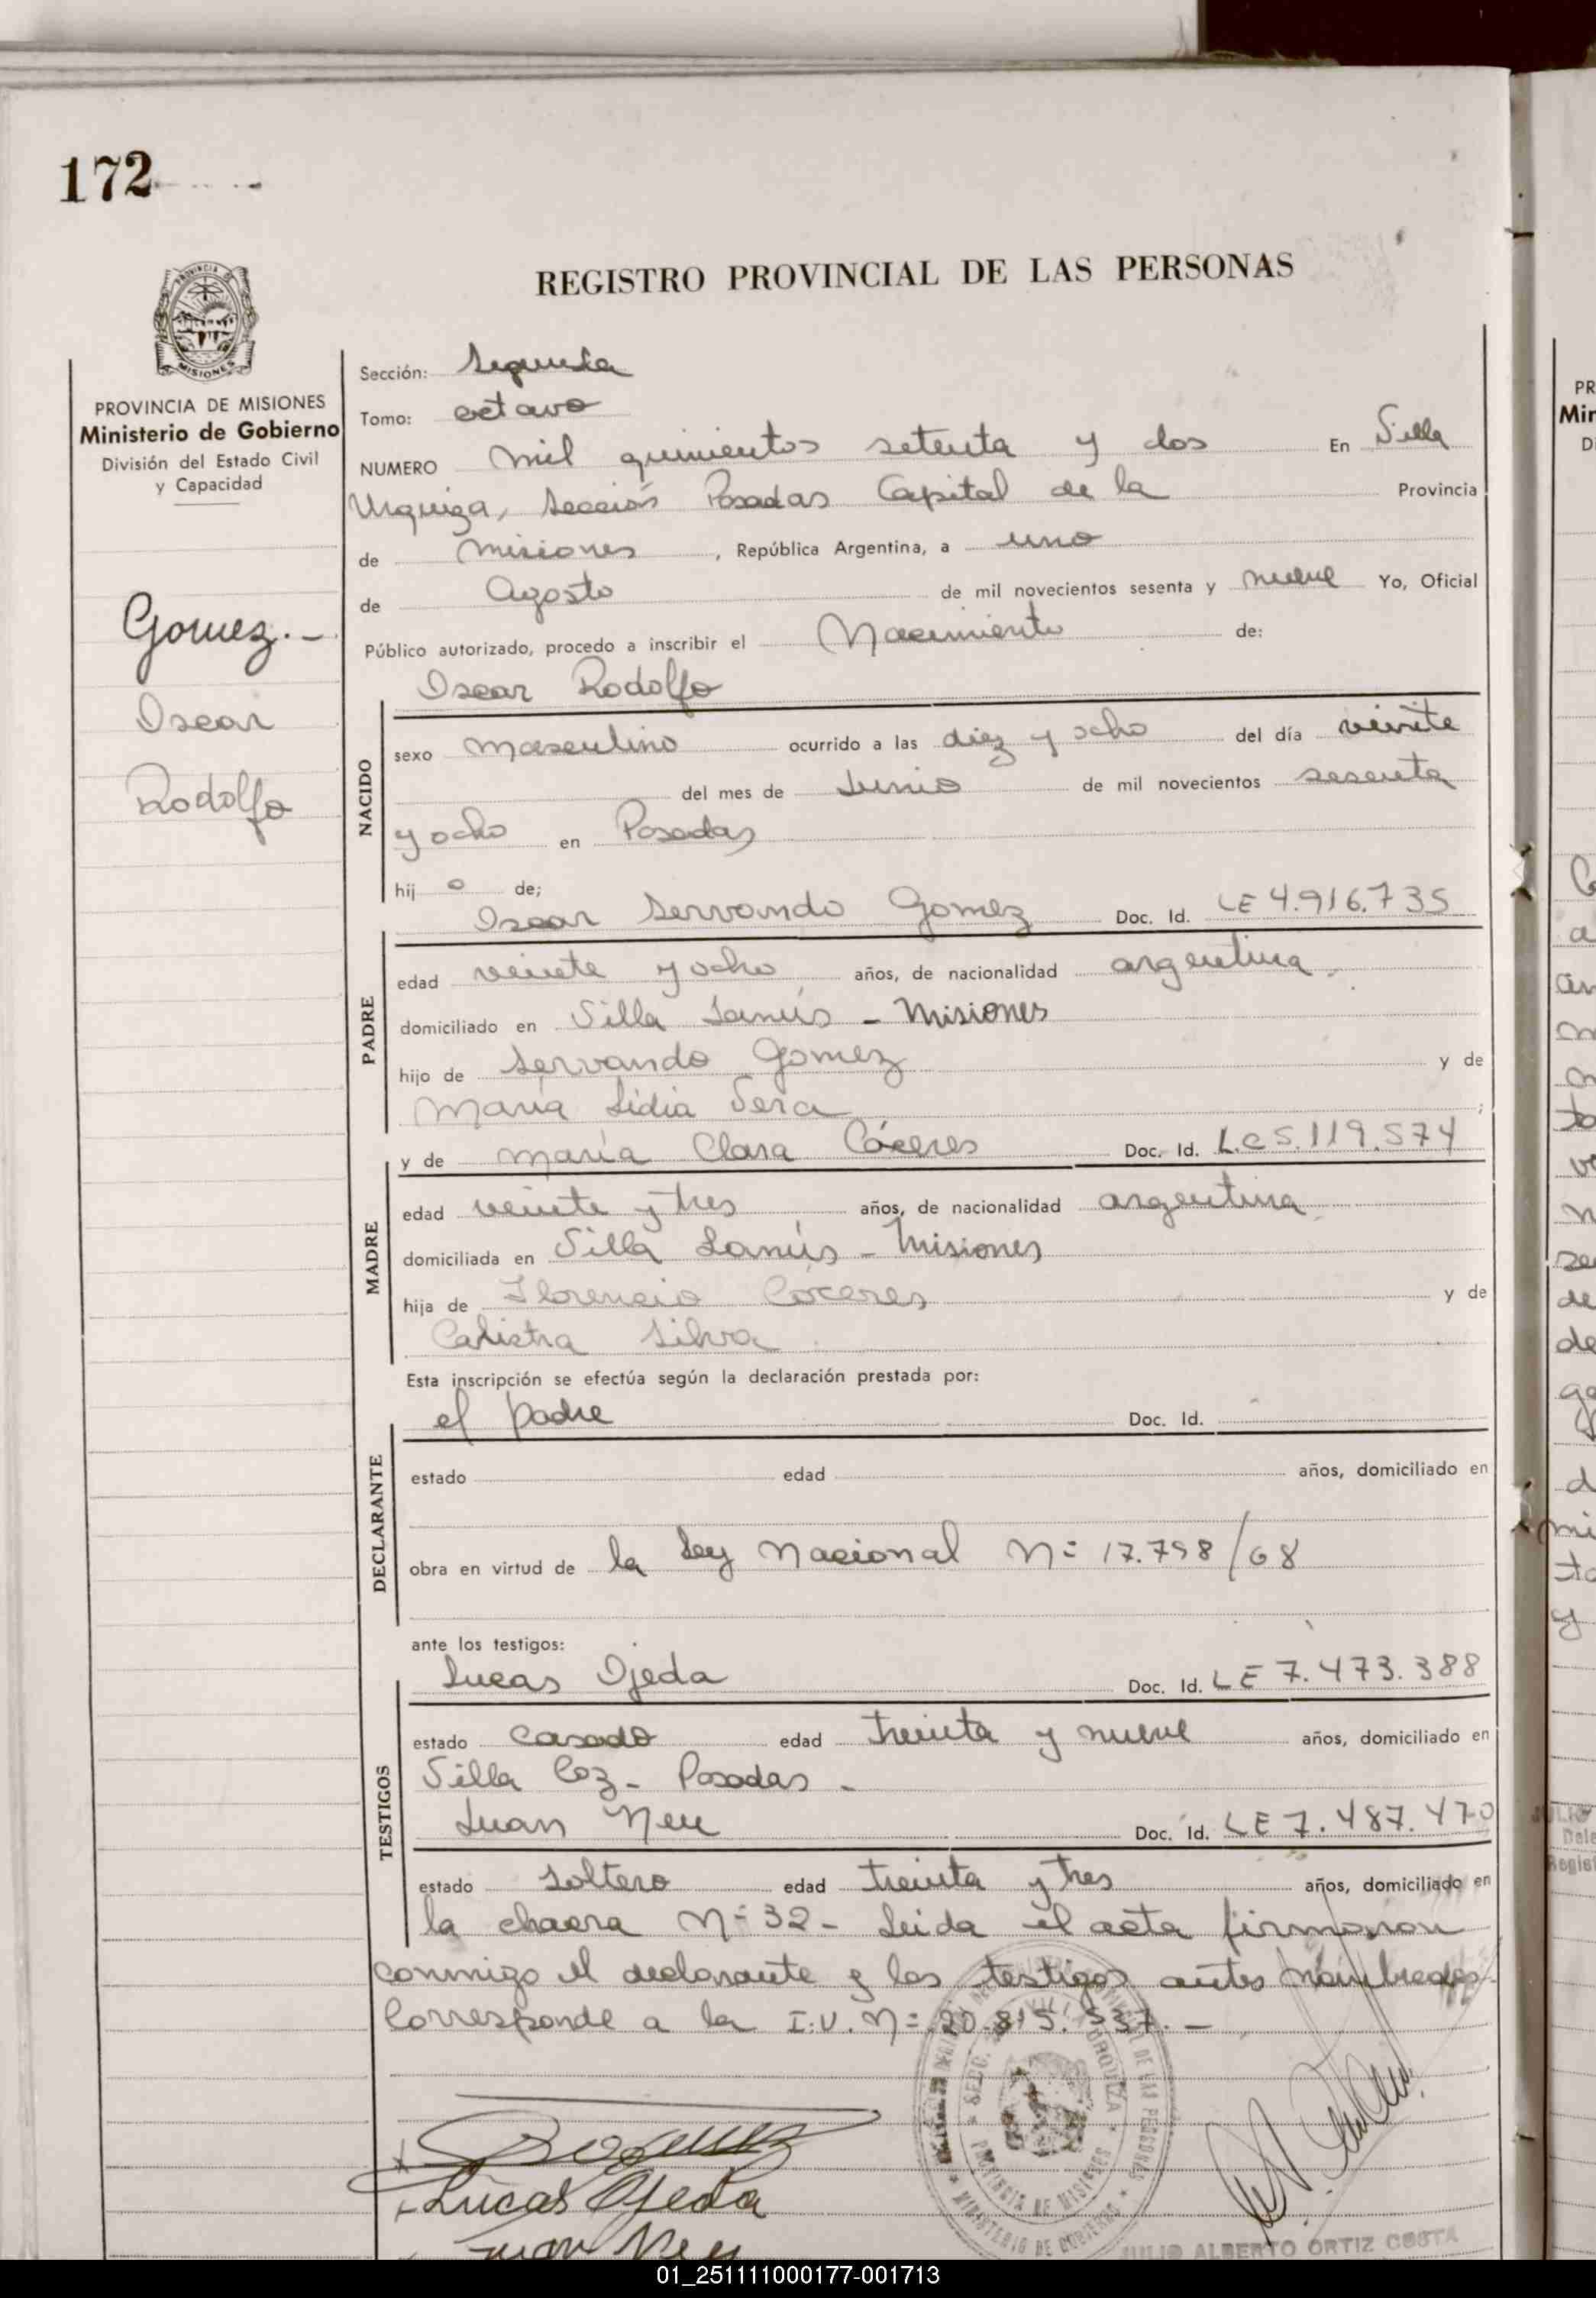 172
REGISTRO PROVINCIAL DE LAS PERSONAS
MISIONES
PROVINCIA DE MISIONES
Ministerio de Gobierno
División del Estado Civil
y Capacidad
Gomez.-
Oscar
Rodolfo
Sección: Segunda
Tomo: octavo
NUMERO mil quinientos setenta y dos En Villa
Urquiza, Sección Posadas Capital de la Provincia
de Misiones, República Argentina, a uno
de Agosto de mil novecientos sesenta y nueve Yo, Oficial
Público autorizado, procedo a inscribir el Nacimiento de:
Oscar Rodolfo
NACIDO
sexo masculino ocurrido a las diez y ocho del día veinte
del mes de Junio de mil novecientos sesenta
y ocho en Posadas
hij o de;
Oscar Servando Gomez Doc. Id. LE 4.916.735
PADRE
edad veinte y ocho años, de nacionalidad argentina.
domiciliado en Villa Lanús - Misiones
hijo de Servando Gomez y de
María Lidia Vera;
y de María Clara Cáceres Doc. Id. L.C 5.119.574
MADRE
edad veinte y tres años, de nacionalidad argentina
domiciliada en Villa Lanús - Misiones
hija de Florencio Cáceres y de
Calistra Silva
Esta inscripción se efectúa según la declaración prestada por:
el padre Doc. Id.
DECLARANTE
estado edad años, domiciliado en
obra en virtud de la Ley Nacional Nº 17.798/68
ante los testigos:
Lucas Ojeda Doc. Id. LE 7.473.388
TESTIGOS
estado casado edad treinta y nueve años, domiciliado en
Villa Coz - Posadas -
Juan Neu Doc. Id. LE 7.487.470
estado soltero edad treinta y tres años, domiciliado en
la chacra Nº 32 - Leida el acta firmaron
conmigo el declarante y los testigos antes nombrados
Corresponde a la I.U. Nº 20.815.537.-
Lucas Ojeda
Juan Neu
PROVINCIA DE MISIONES
MINISTERIO DE GOBIERNO
JULIO ALBERTO ORTIZ COSTA
01_251111000177-001713